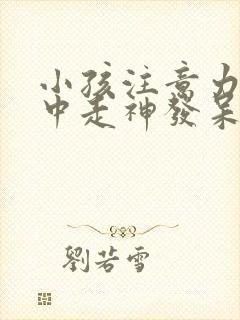 小孩注意力
中走神發呆
劉若雪